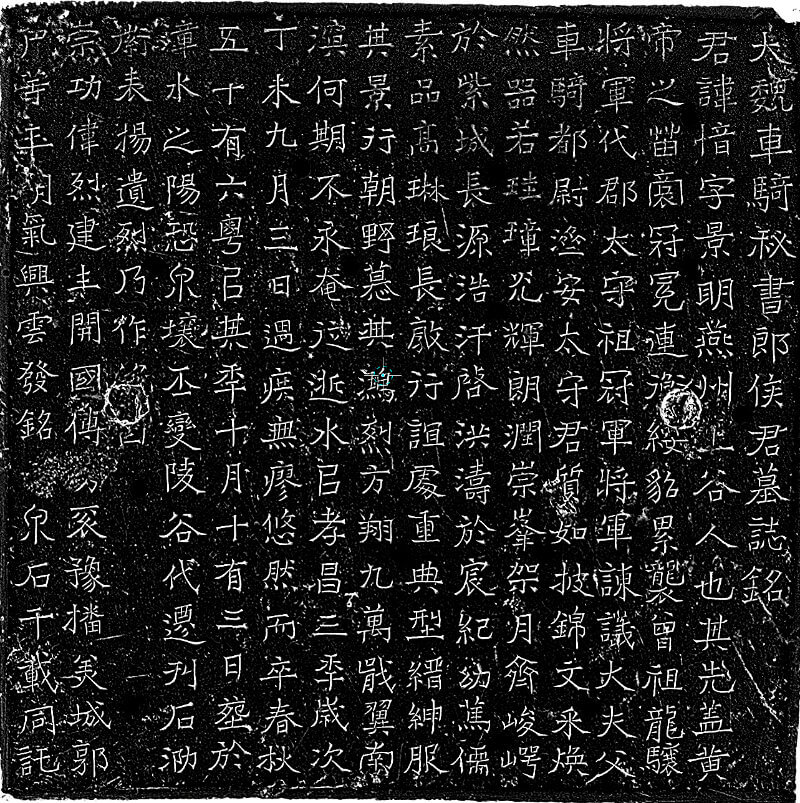 大魏車騎秘書郎侯君墓誌銘
君諱愔字景明燕州上谷人也其先蓋黃
帝之苗裔冠冕連綬貂累襲曾祖龍驤
將軍代郡太守祖冠軍將軍諫議大夫父
車騎都尉安太守君質如披錦文采煥
然器若珪璋光輝朗潤崇峯架月齊峻崿
於紫城長源浩汗啓洪濤於宸紀幼蔿儒
素品高琳琅長敲行誼處重典型縉紳服
其景行朝野慕其鴻烈方翔九萬戢翼南
濱何期不永奄從逝水㠯孝昌三季歲次
丁未九月三日遇疾無廖悠然而卒春秋
五十有六粵㠯其季十月十有三日窆於
漳水之陽恐泉壤丕變陵谷代遷刊石泐
表揚遺烈乃作
崇功偉烈建丰開國傳豫播美城郭
善年氣興雲發銘泉石千載同託